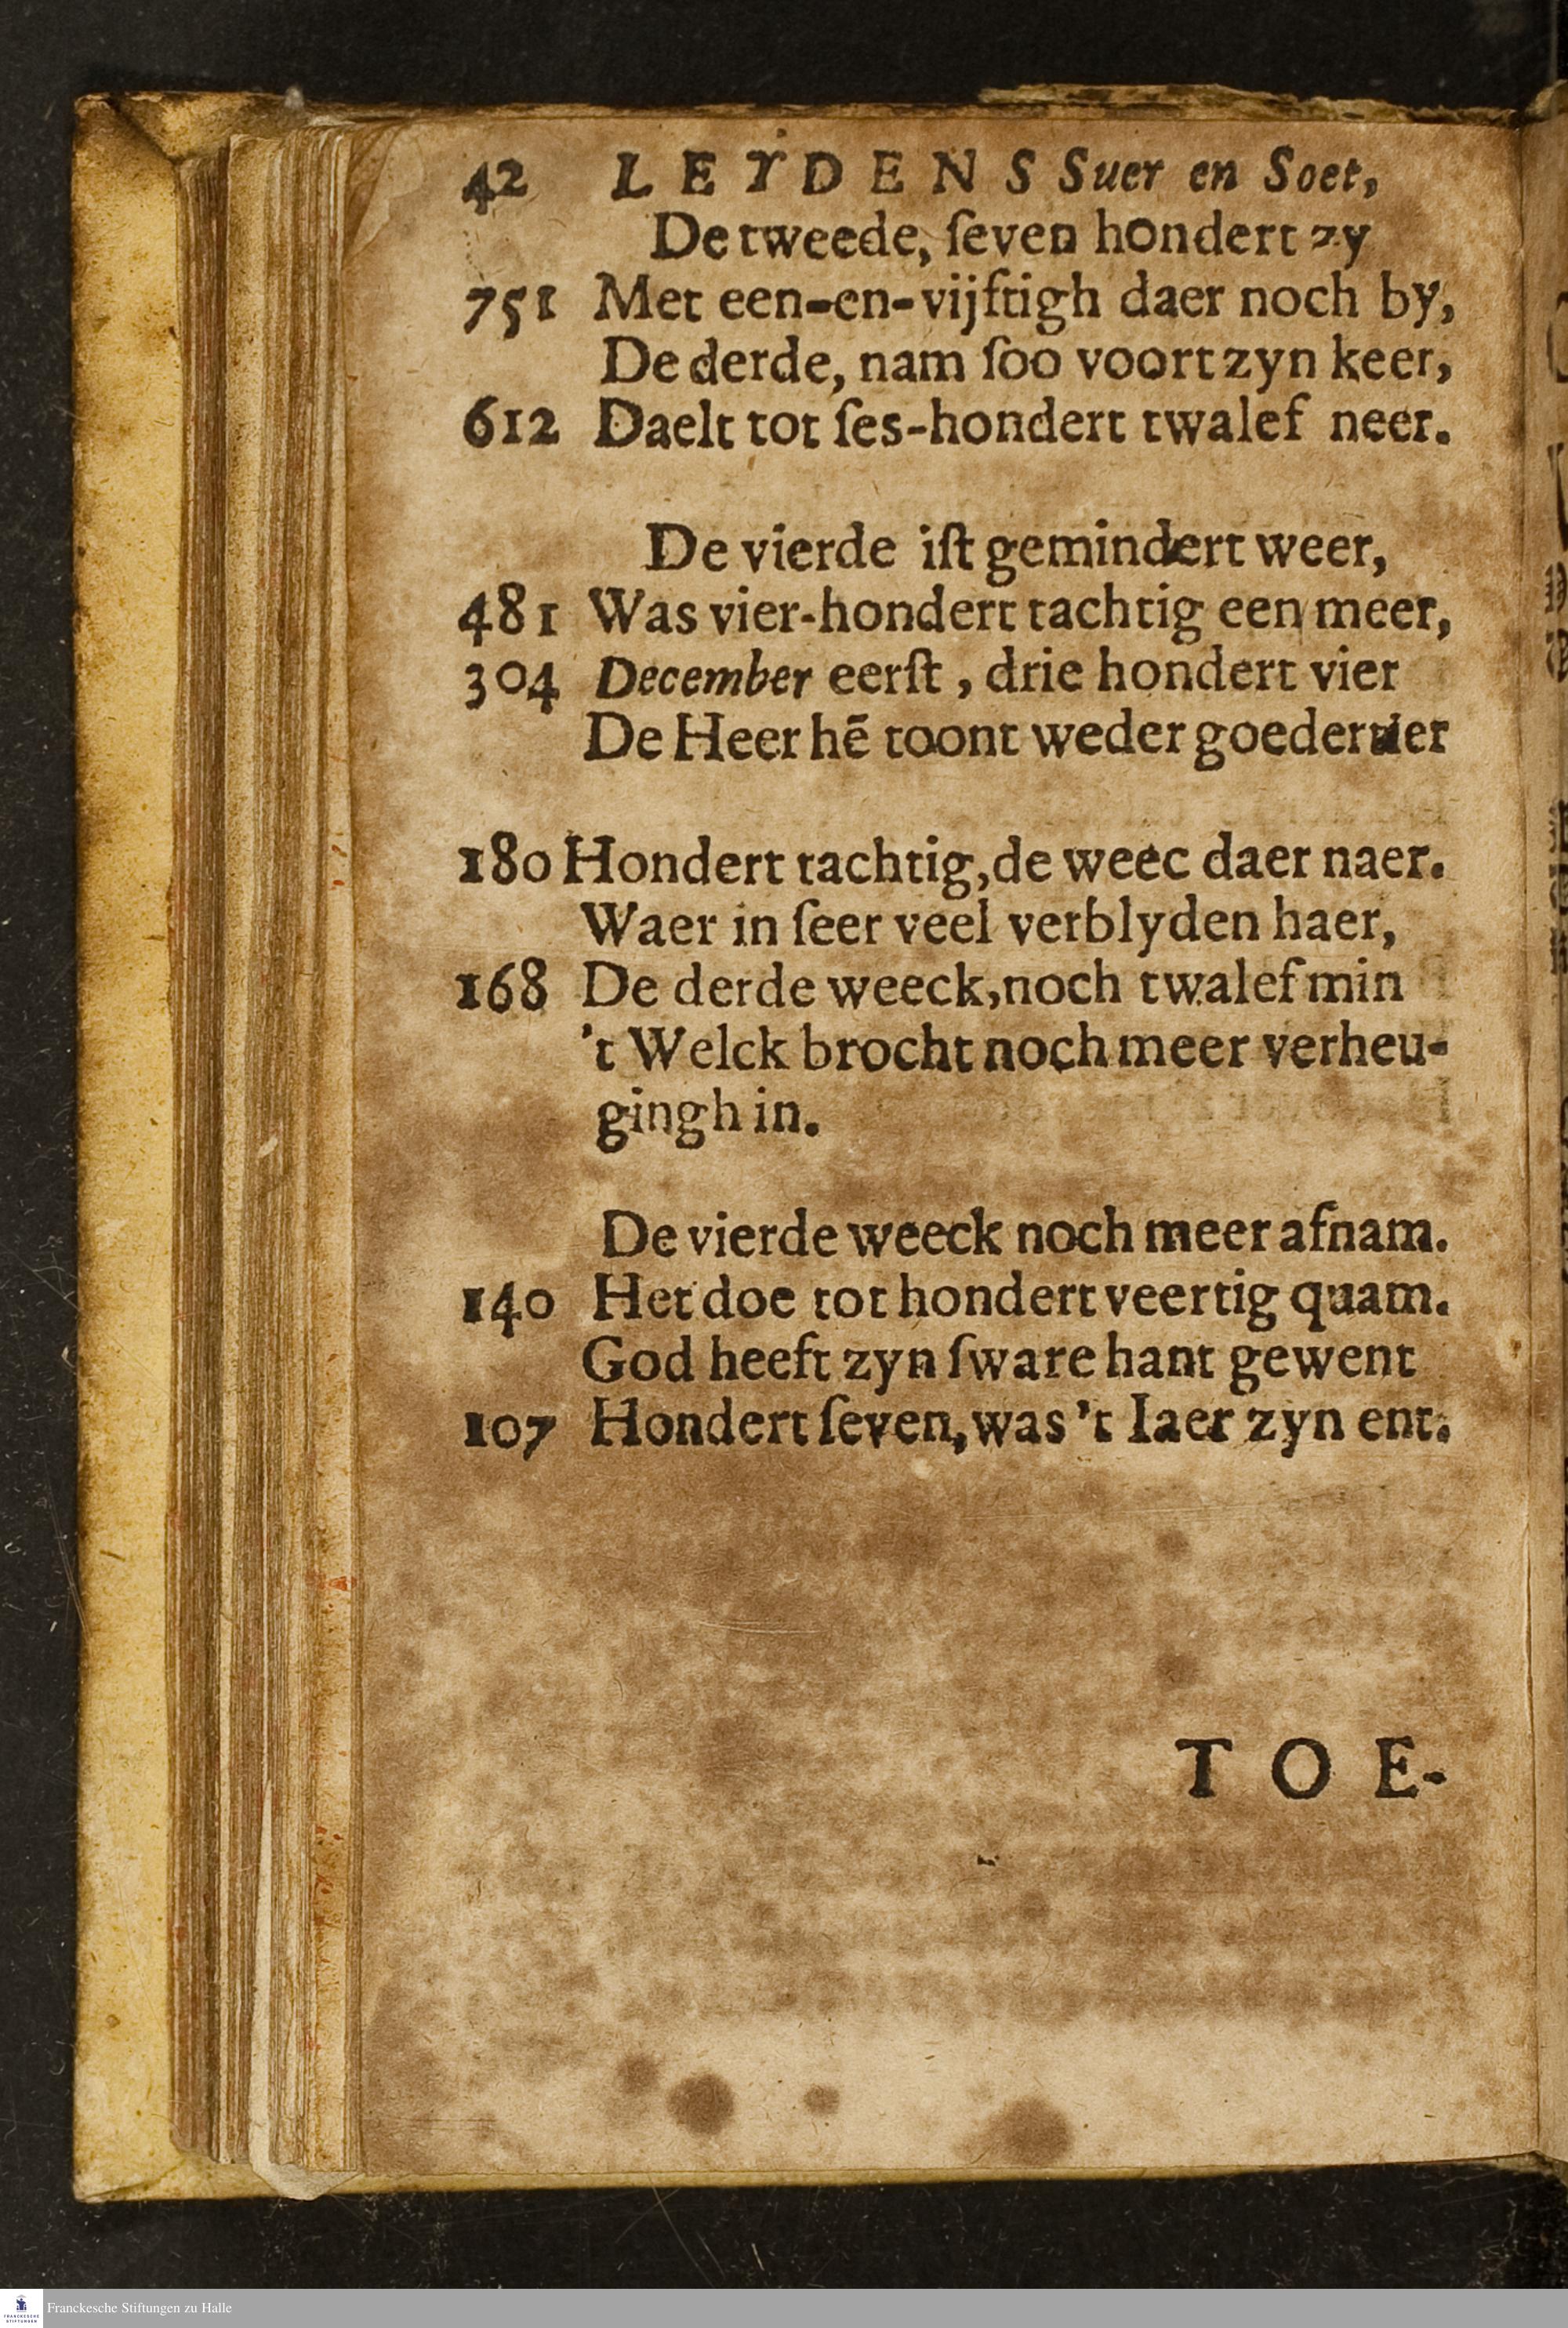 42 LEYDENS Suer en Soet,
De tweede, ſeven hondert zy
751 Met een-en-vijftigh daer noch by,
De derde, nam ſoo voort zyn keer,
612 Daelt tot ſes-hondert twalef neer.
De vierde iſt gemindert weer,
481 Was vier-hondert tachtig een meer,
304 December eerſt, drie hondert vier
De Heer hē toont weder goedertier
180 Hondert tachtig, de weec daer naer.
Waer in ſeer veel verblyden haer,
168 De derde weeck, noch twalef min
't Welck brocht noch meer verheu-
gingh in.
De vierde weeck noch meer afnam.
140 Het doe tot hondert veertig quam.
God heeft zyn ſware hant gewent
107 Hondert ſeven, was 't Iaer zyn ent.
TOE-
FRANCKESCHE STIFTUNGEN
Franckesche Stiftungen zu Halle